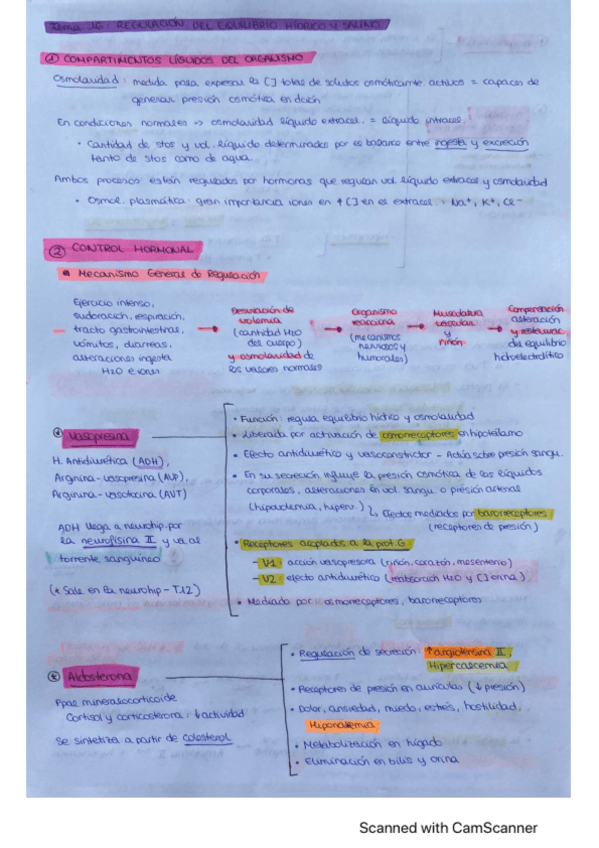 Tema 16: REGULACIÓN DEL EQUILIBRIO HÍDRICO Y SALINO
① COMPARTIMENTOS LÍQUIDOS DEL ORGANISMO
Osmolaridad: medida para expresar la [] total de solutos osmóticamte. activos = capaces de
generar presión osmótica en dción
En condiciones normales => osmolaridad líquido extracel. = líquido intracel.
• Cantidad de stos y vol. líquido determinados por el balance entre ingesta y excreción
tanto de stos como de agua.
Ambos procesos están regulados por hormonas que regulan vol. líquido extracel y osmolaridad
• Osmol. plasmática: gran importancia iones en ↑[] en el extracel.: Na⁺, K⁺, Cl⁻
② CONTROL HORMONAL
Mecanismo General de Regulación
Ejercicio intenso,
sudoración, respiración,
tracto gastrointestinal,
vómitos, diarreas,
alteraciones ingesta
H2O e iones
Desviación de
volemia
(cantidad H2O
del cuerpo)
y osmolaridad de
los valores normales
Organismo
reacciona
(mecanismos
nerviosos y
humorales)
Musculatura
vascular
y
riñón
Compensación
alteración
y restaurac.
del equilibrio
hidroelectrolítico
Vasopresina
H. Antidiurética (ADH),
Arginina-vasopresina (AVP),
Arginina-vasotocina (AVT)
ADH llega a neurohip. por
la neurofisina II y va al
torrente sanguíneo
(* Sale en la neurohip - T.12)
• Función: regula equilibrio hídrico y osmolaridad
• Liberada por activación de osmorreceptores en hipotálamo
• Efecto antidiurético y vasoconstrictor - Actúa sobre presión sangu.
• En su secreción influye la presión osmótica de los líquidos
corporales, alteraciones en vol. sangu. o presión arterial
(hipovolemia, hiperv.) ↳ Efectos mediados por barorreceptores
(receptores de presión)
• Receptores acoplados a la prot. G
- V1: acción vasopresora (riñón, corazón, mesenterio)
- V2: efecto antidiurético (reabsorción H2O y [] orina)
• Mediado por: osmorreceptores, barorreceptores
Aldosterona
Ppal mineralocorticoide
Cortisol y corticosterona: ↓actividad
Se sintetiza a partir de colesterol
• Regulación de secreción: ↑angiotensina II,
Hipercalcemia
• Receptores de presión en aurículas (↓presión)
• Dolor, ansiedad, miedo, estrés, hostilidad,
Hiponatremia
• Metabolización en hígado
• Eliminación en bilis y orina
Scanned with CamScanner